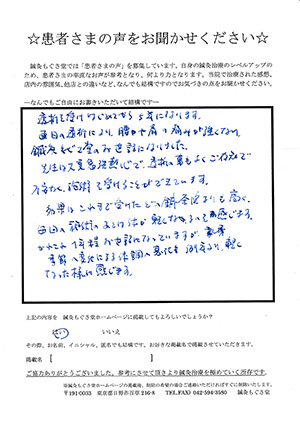 ☆患者さまの声をお聞かせください☆
鍼灸もぐさ堂では「患者さまの声」を募集しています。自身の鍼灸治療のレベルアップの
ため、患者さまの率直なお声が参考となり、何より力となります。当院で治療された感想、
店内の雰囲気、他店との違いなど、なんでも結構ですのでお気づきの点をお聞かせください。
―なんでもご自由にお書きいただいて結構です―
透析を受けはじめてから5年になります。
毎回の透析により、腰や肩の痛みが強くなり、
鍼灸もぐさ堂のお世話になりました。
先生は大変勉強熱心で、透析の事もよくご存知で
安心して施術を受けることができています。
効果はこれまで受けたどの鍼灸院よりも高く、
毎回の施術のあとは体が軽くなるのを感じます。
かれこれ1年程お世話になっていますが、
季節の変化による体調の悪化も例年より軽く
なった様に感じます。
上記の内容を 鍼灸もぐさ堂ホームページに掲載してもよろしいでしょうか?
はい いいえ
その際、お名前、イニシャル、匿名でも結構です。お好きな掲載名で掲載させていただきます。
掲載名 [ ]
ご協力ありがとうございました。参考にさせて頂きより鍼灸治療を極めていく所存です.
※鍼灸もぐさ堂ホームページへの掲載後、削除の希望の場合ご連絡いただければすぐに削除いたします。
〒191-0033 東京都日野市百草216-8 TEL.FAX) 042-594-3580 鍼灸もぐさ堂